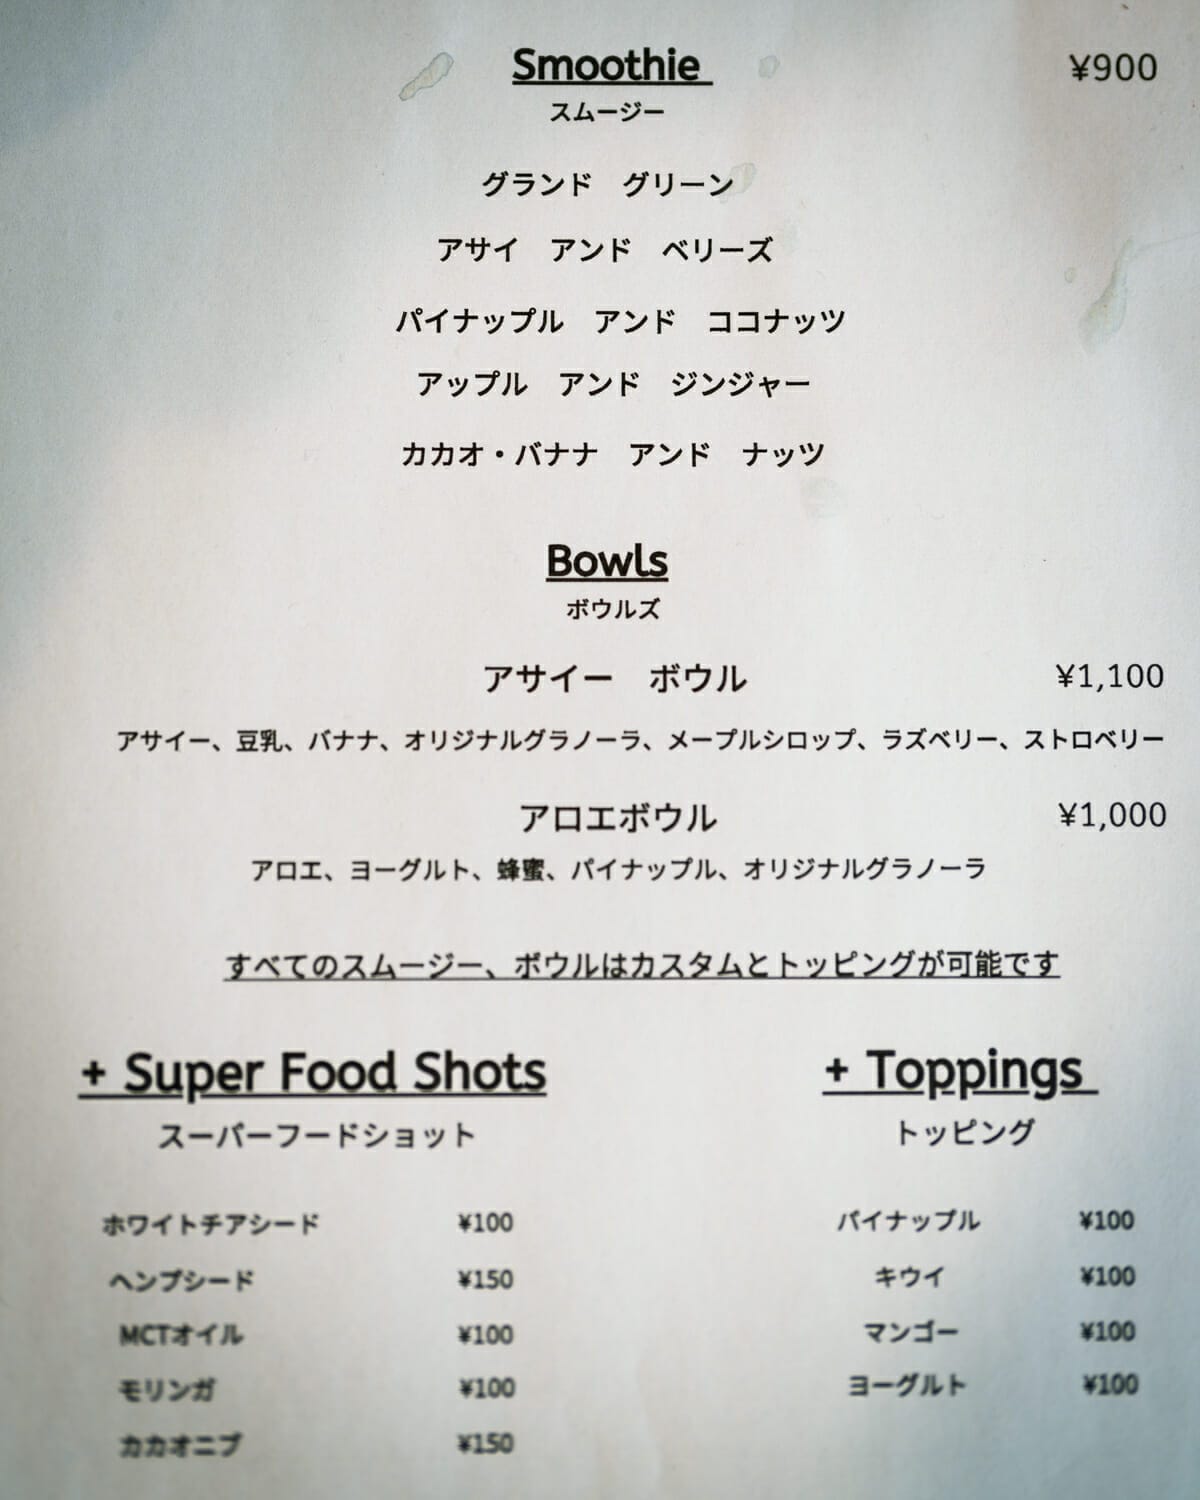 Smoothie ¥900
スムージー
グランド　グリーン
アサイ　アンド　ベリーズ
パイナップル　アンド　ココナッツ
アップル　アンド　ジンジャー
カカオ・バナナ　アンド　ナッツ
Bowls
ボウルズ
アサイー　ボウル ¥1,100
アサイー、豆乳、バナナ、オリジナルグラノーラ、メープルシロップ、ラズベリー、ストロベリー
アロエボウル ¥1,000
アロエ、ヨーグルト、蜂蜜、パイナップル、オリジナルグラノーラ
すべてのスムージー、ボウルはカスタムとトッピングが可能です
+ Super Food Shots
スーパーフードショット
ホワイトチアシード ¥100
ヘンプシード ¥150
MCTオイル ¥100
モリンガ ¥100
カカオニブ ¥150
+ Toppings
トッピング
パイナップル ¥100
キウイ ¥100
マンゴー ¥100
ヨーグルト ¥100